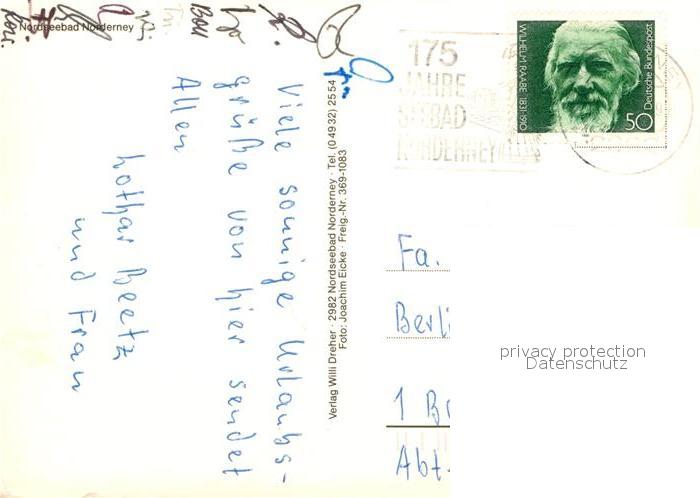 Nordseebad Norderney
Viele sonnige Urlaubs-
grüße von hier sendet
Allen
Lothar Beetz
und Frau
Verlag Willi Dreher · 2982 Nordseebad Norderney · Tel. (0 49 32) 25 54
Foto: Joachim Eicke · Freig.-Nr. 369-1083
175
JAHRE
SEEBAD
NORDERNEY
WILHELM RAABE 1831-1910
Deutsche Bundespost
50
Fa.
Berli
1 B
Abt.
privacy protection
Datenschutz